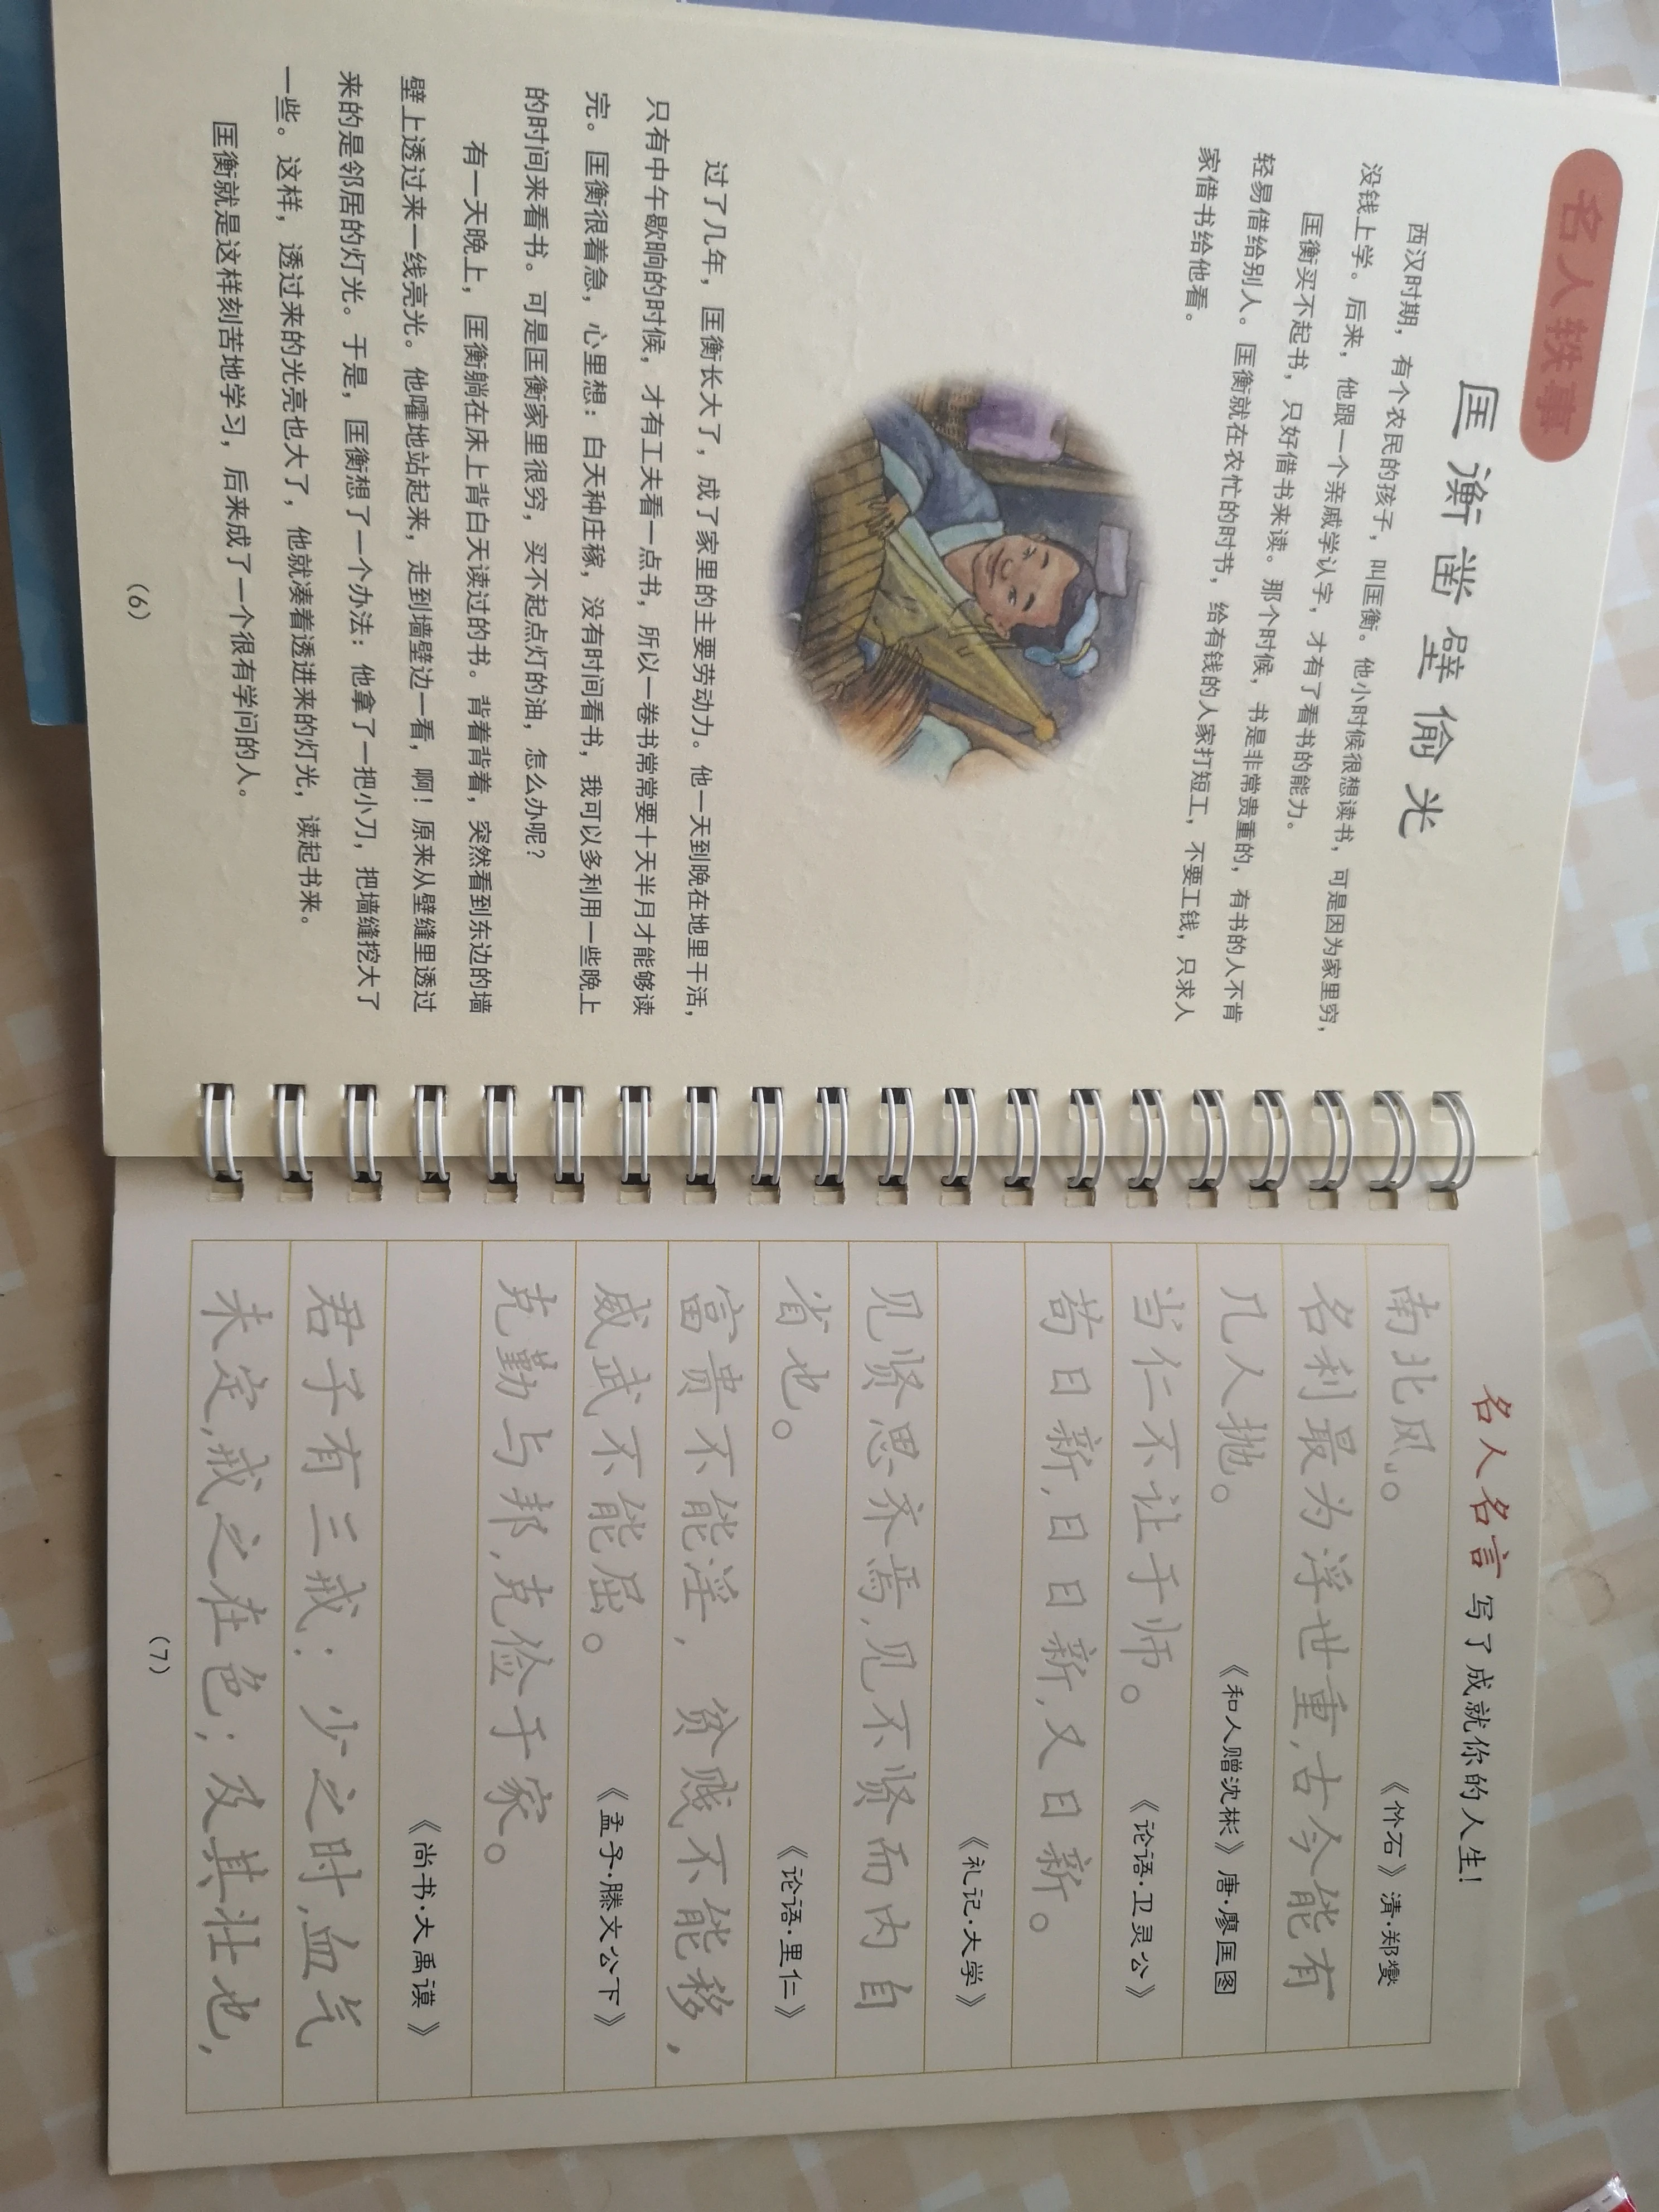 名人轶事
匡衡凿壁偷光
西汉时期，有个农民的孩子，叫匡衡。他小时候很想读书，可是因为家里穷，
没钱上学。后来，他跟一个亲戚学认字，才有了看书的能力。
匡衡买不起书，只好借书来读。那个时候，书是非常贵重的，有书的人不肯
轻易借给别人。匡衡就在农忙的时节，给有钱的人家打短工，不要工钱，只求人
家借书给他看。
过了几年，匡衡长大了，成了家里的主要劳动力。他一天到晚在地里干活，
只有中午歇晌的时候，才有工夫看一点书，所以一卷书常常要十天半月才能够读
完。匡衡很着急，心里想：白天种庄稼，没有时间看书，我可以多利用一些晚上
的时间来看书。可是匡衡家里很穷，买不起点灯的油，怎么办呢？
有一天晚上，匡衡躺在床上背白天读过的书。背着背着，突然看到东边的墙
壁上透过来一线亮光。他嚯地站起来，走到墙壁边一看，啊！原来从壁缝里透过
来的是邻居的灯光。于是，匡衡想了一个办法：他拿了一把小刀，把墙缝挖大了
一些。这样，透过来的光亮也大了，他就凑着透进来的灯光，读起书来。
匡衡就是这样刻苦地学习，后来成了一个很有学问的人。
（6）
名人名言 写了成就你的人生！
南北风。。 《竹石》清·郑燮
名利最为浮世重，古今能有
几人抛。 《和人赠沈彬》唐·廖匡图
当仁不让于师。 《论语·卫灵公》
苟日新，日日新，又日新。
《礼记·大学》
见贤思齐焉，见不贤而内自
省也。 《论语·里仁》
富贵不能淫，贫贱不能移，
威武不能屈。 《孟子·滕文公下》
克勤与邦，克俭于家。
《尚书·大禹谟》
君子有三戒：少之时，血气
未定，戒之在色；及其壮也，
（7）